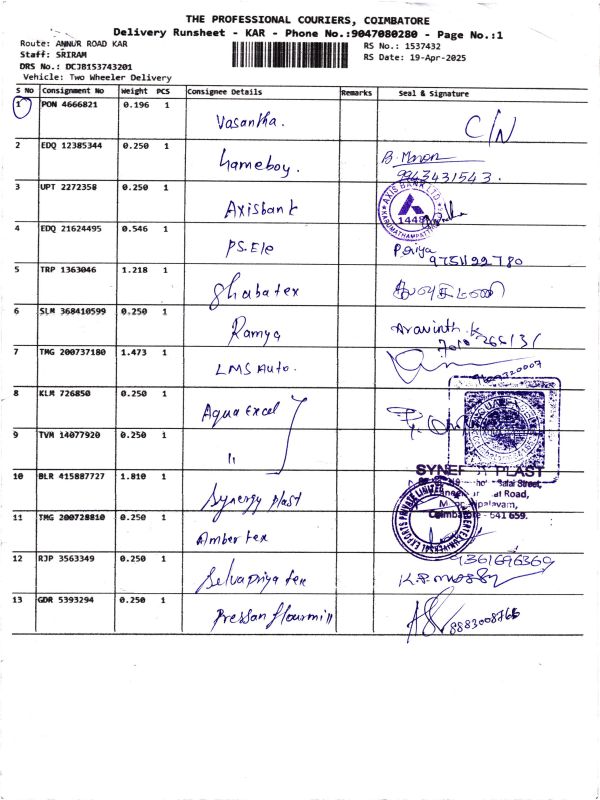 THE PROFESSIONAL COURIERS, COIMBATORE
Delivery Runsheet - KAR - Phone No.:9047080280 - Page No.:1
Route: ANNUR ROAD KAR
RS No.: 1537432
Staff: SRIRAM
RS Date: 19-Apr-2025
DRS No.: DCJB153743201
Vehicle: Two Wheeler Delivery
S No Consignment No Weight PCS Consignee Details Remarks Seal & Signature
1 PON 4666821 0.196 1 Vasantha. C/N
2 EDQ 12385344 0.250 1 hameboy. B. Manon
9943431543.
3 UPT 2272358 0.250 1 Axisbank AXIS BANK LTD. 1448
4 EDQ 21624495 0.546 1 PS.Ele Periya
9751122780
5 TRP 1363046 1.218 1 Shabatex
6 SLM 368410599 0.250 1 Ramya Aravinth.k
7 TMG 200737180 1.473 1 LMS Auto.
9629320007
8 KLM 726850 0.250 1 Aqua Excel
9 TVM 14077920 0.250 1 "
10 BLR 415887727 1.810 1 Synergy plast SYNERGY PLAST
Road,
Coimbatore - 641 659.
11 TMG 200728810 0.250 1 Ambertex
12 RJP 3563349 0.250 1 Selvapriya tex 9361696369
13 GDR 5393294 0.250 1 Pressan flourmill 8883008766